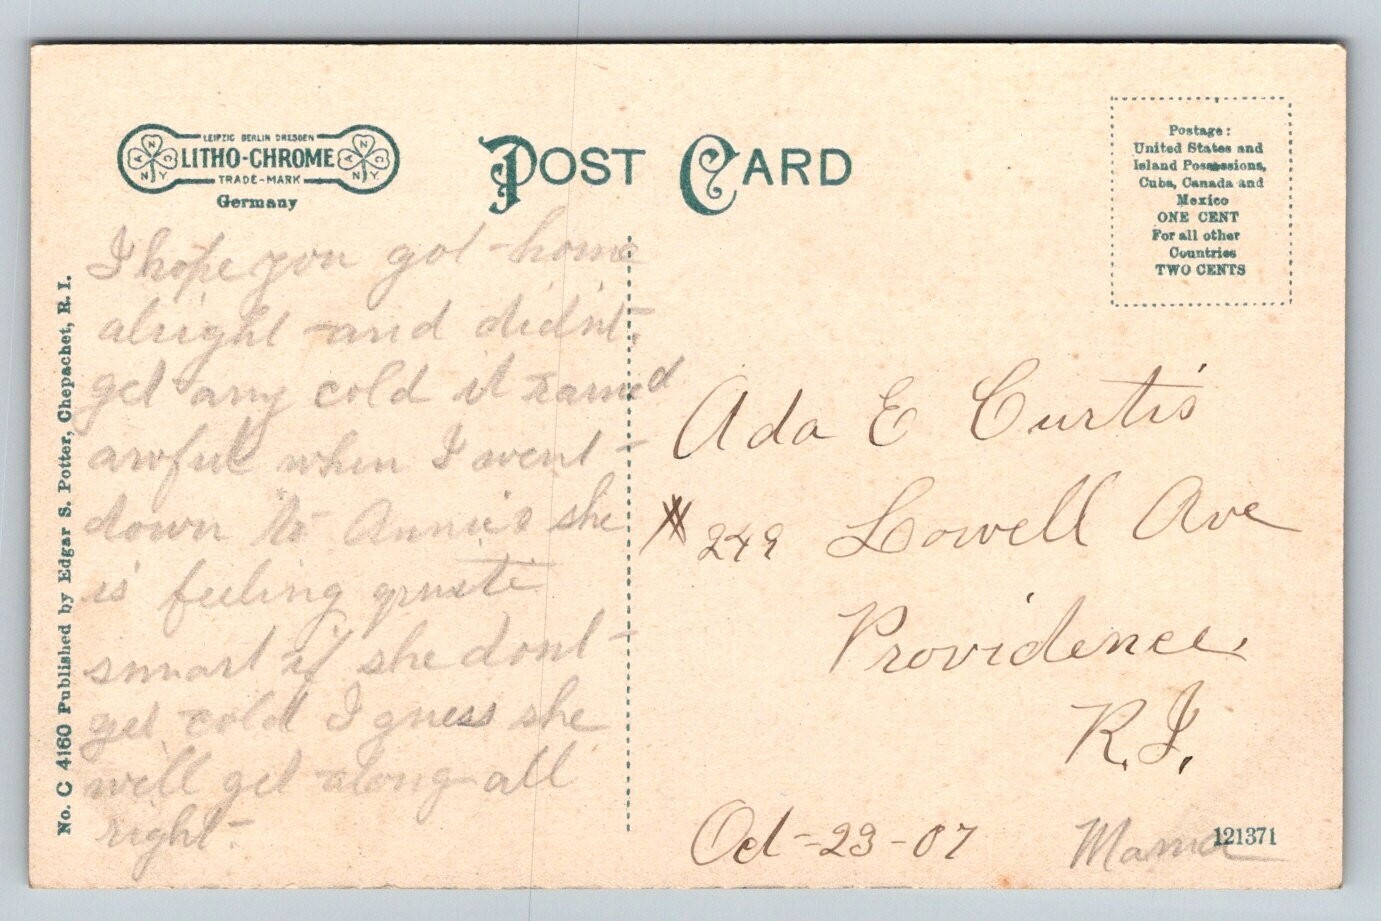 LEIPZIG BERLIN DRESDEN
LITHO-CHROME
TRADE-MARK
Germany
POST CARD
Postage:
United States and
Island Possessions,
Cuba, Canada and
Mexico
ONE CENT
For all other
Countries
TWO CENTS
No. C 4160 Published by Edgar S. Potter, Chepachet, R. I.
I hope you got home
alright and didnt
get any cold it rained
awful when I went
down to Annie's she
is feeling
smart if she dont
get cold I guess she
will get along all
right.
Ada E Curtis
# 249 Lowell Ave
Providence.
R.I.
Oct-23-07
Mama
121371